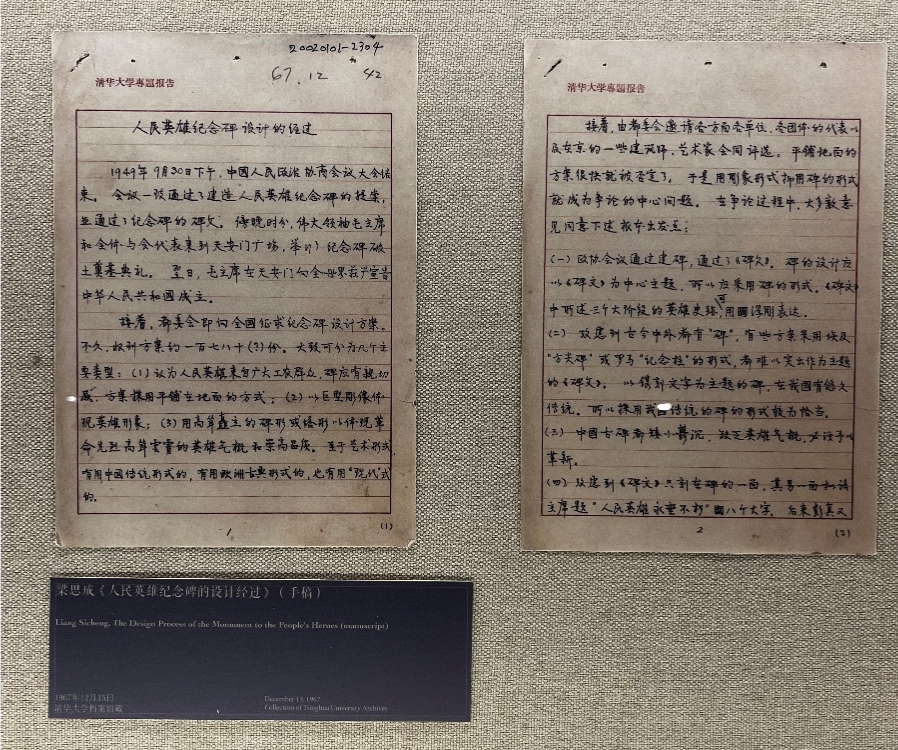 20020101-2304
67.12 42
清华大学專題报告
人民英雄纪念碑设计的经过
1949年9月30日下午，中国人民政治协商会议大会结
束。会议一致通过了建造人民英雄纪念碑的提案，
並通过了纪念碑的碑文。傍晚时分，伟大领袖毛主席
和全体与会代表来到天安门广场，举行纪念碑破
土奠基典礼。翌日，毛主席在天安门向全世界庄严宣告
中华人民共和国成立。
接着，都委会即向全国征求纪念碑设计方案。
不久，收到方案约一百七八十(?)份。大致可分为几个主
要类型：(1)认为人民英雄来自广大工农群众，碑应有亲切
感，方案採用平铺在地面的方式；(2)以巨型彫像体
现英雄形象；(3)用高耸矗立的碑形或塔形以体现革
命先烈高耸云霄的英雄气概和崇高品质。至于艺术形式，
有用中国传统形式的，有用欧洲古典形式的，也有用“现代式”
的。
1
(1)
清华大学專題报告
接着，由都委会邀请各方面各单位、各团体的代表以
及在京的一些建筑师、艺术家会同评选。平铺地面的
方案很快就被否定了。于是用彫象形式抑用碑的形式
就成为争论的中心问题。在争论过程中，大多数意
见同意下述教育出发点：
(一)政协会议通过建碑，通过了《碑文》。碑的设计应
以《碑文》为中心主题，所以应采用碑的形式。《碑文》
中所述三个大阶段的英雄史跡，可用浮彫表达。
(二)考虑到古今中外都有“碑”，有些方案采用埃及
“方尖碑”或罗马“纪念柱”的形式，都难以突出作为主题
的《碑文》。以镌刻文字为主题的碑，在我国有悠久
传统。所以採用我国传统的碑的形式较为恰当。
(三)中国古碑都矮小郁沉，缺乏英雄气概，必须予以
革新。
(四)考虑到《碑文》只刻在碑的一面，其另一面拟请
主席题“人民英雄永垂不朽”八个大字。后来彭真又
2
(2)
梁思成《人民英雄纪念碑的设计经过》（手稿）
Liang Sicheng, The Design Process of the Monument to the People's Heroes (manuscript)
1967年12月15日
清华大学档案馆藏
December 15, 1967
Collection of Tsinghua University Archives